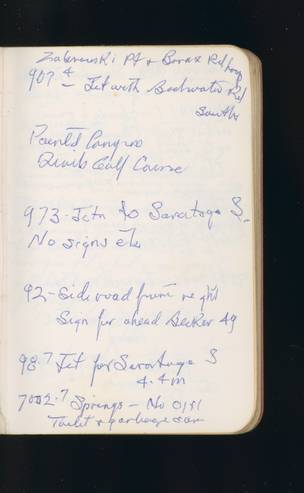 Zabrowski Pt & Borax Rd loop
907⁴ - Jct with Backwater Rd
South
Painted Canyon
Golf Course
973 - Jctn to Saratoga S.
No signs etc
92 - Side road from right
Sign for ahead Becker 49
98.7 Jct for Saratoga S
4.4m
7002.7 Springs - No
Toilet & garbage can